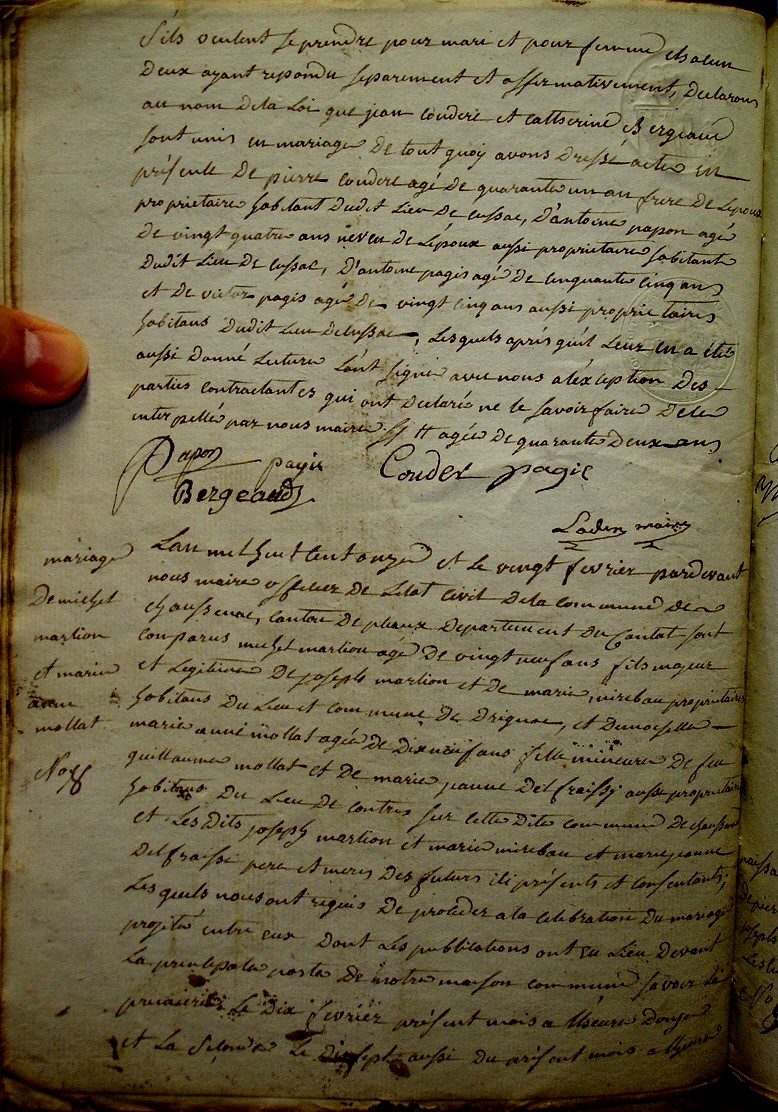 s'ils veulent se prendre pour mari et pour femme chacun
deux ayant repondu separement et affirmativement, declarons
au nom de la Loi que jean couderc et catherine Bergeaud
sont unis en mariage de tout quoy avons dressé acte en
présence de pierre couderc agé de quarante un an frere de Lepoux
proprietaire habitant dudit Lieu de cussac, d'antoine papon agé
de vingt quatre ans neveu de Lépoux aussi proprietaire habitant
dudit Lieu de cussac, d'antoine pagis agé de cinquante cinq ans
et de victor pagis agé de vingt cinq ans aussi proprietaires
habitans dudit Lieu de cussac, Lesquels aprés qu'il Leur en a été
aussi donné Lecture L'ont signé avec nous a léxception des
parties contractantes qui ont declaré ne le savoir faire de ce
interpellé par nous maire agée de quarante deux ans
Papon pagis Couderc pagis
Bergeaud
maire
mariage
de michel
martion
et marie
anne
mollat
No 8
Lan mil huit cent onze et le vingt fevrier pardevant
nous maire officier de Létat civil de la commune de
chaussenac, canton de pleaux departement du Cantal sont
comparus michel martion agé de vingt neuf ans fils majeur
et Legitime de joseph martion et de marie mirebau proprietaires
habitans du Lieu et commune de Drignac, et demoiselle
marie anne mollat agée de dixneuf ans fille mineure de feu
guillaume mollat et de marie jeanne delfraissi aussi proprietaire
habitans du Lieu de contres sur cette dite commune de chaussenac
et Les dits joseph martion et marie mirebau et marie jeanne
delfraisse pere et meres des futurs ici présents et consentants,
Lesquels nous ont requis de proceder a la celebration du mariage
projeté entre eux dont Les publications ont eu Lieu devant
La principale porte de notre maison commune savoir La
premiere Le dix fevrier présent mois a Lheure d'onze
et La seconde Le dix sept aussi du présent mois a Lheure